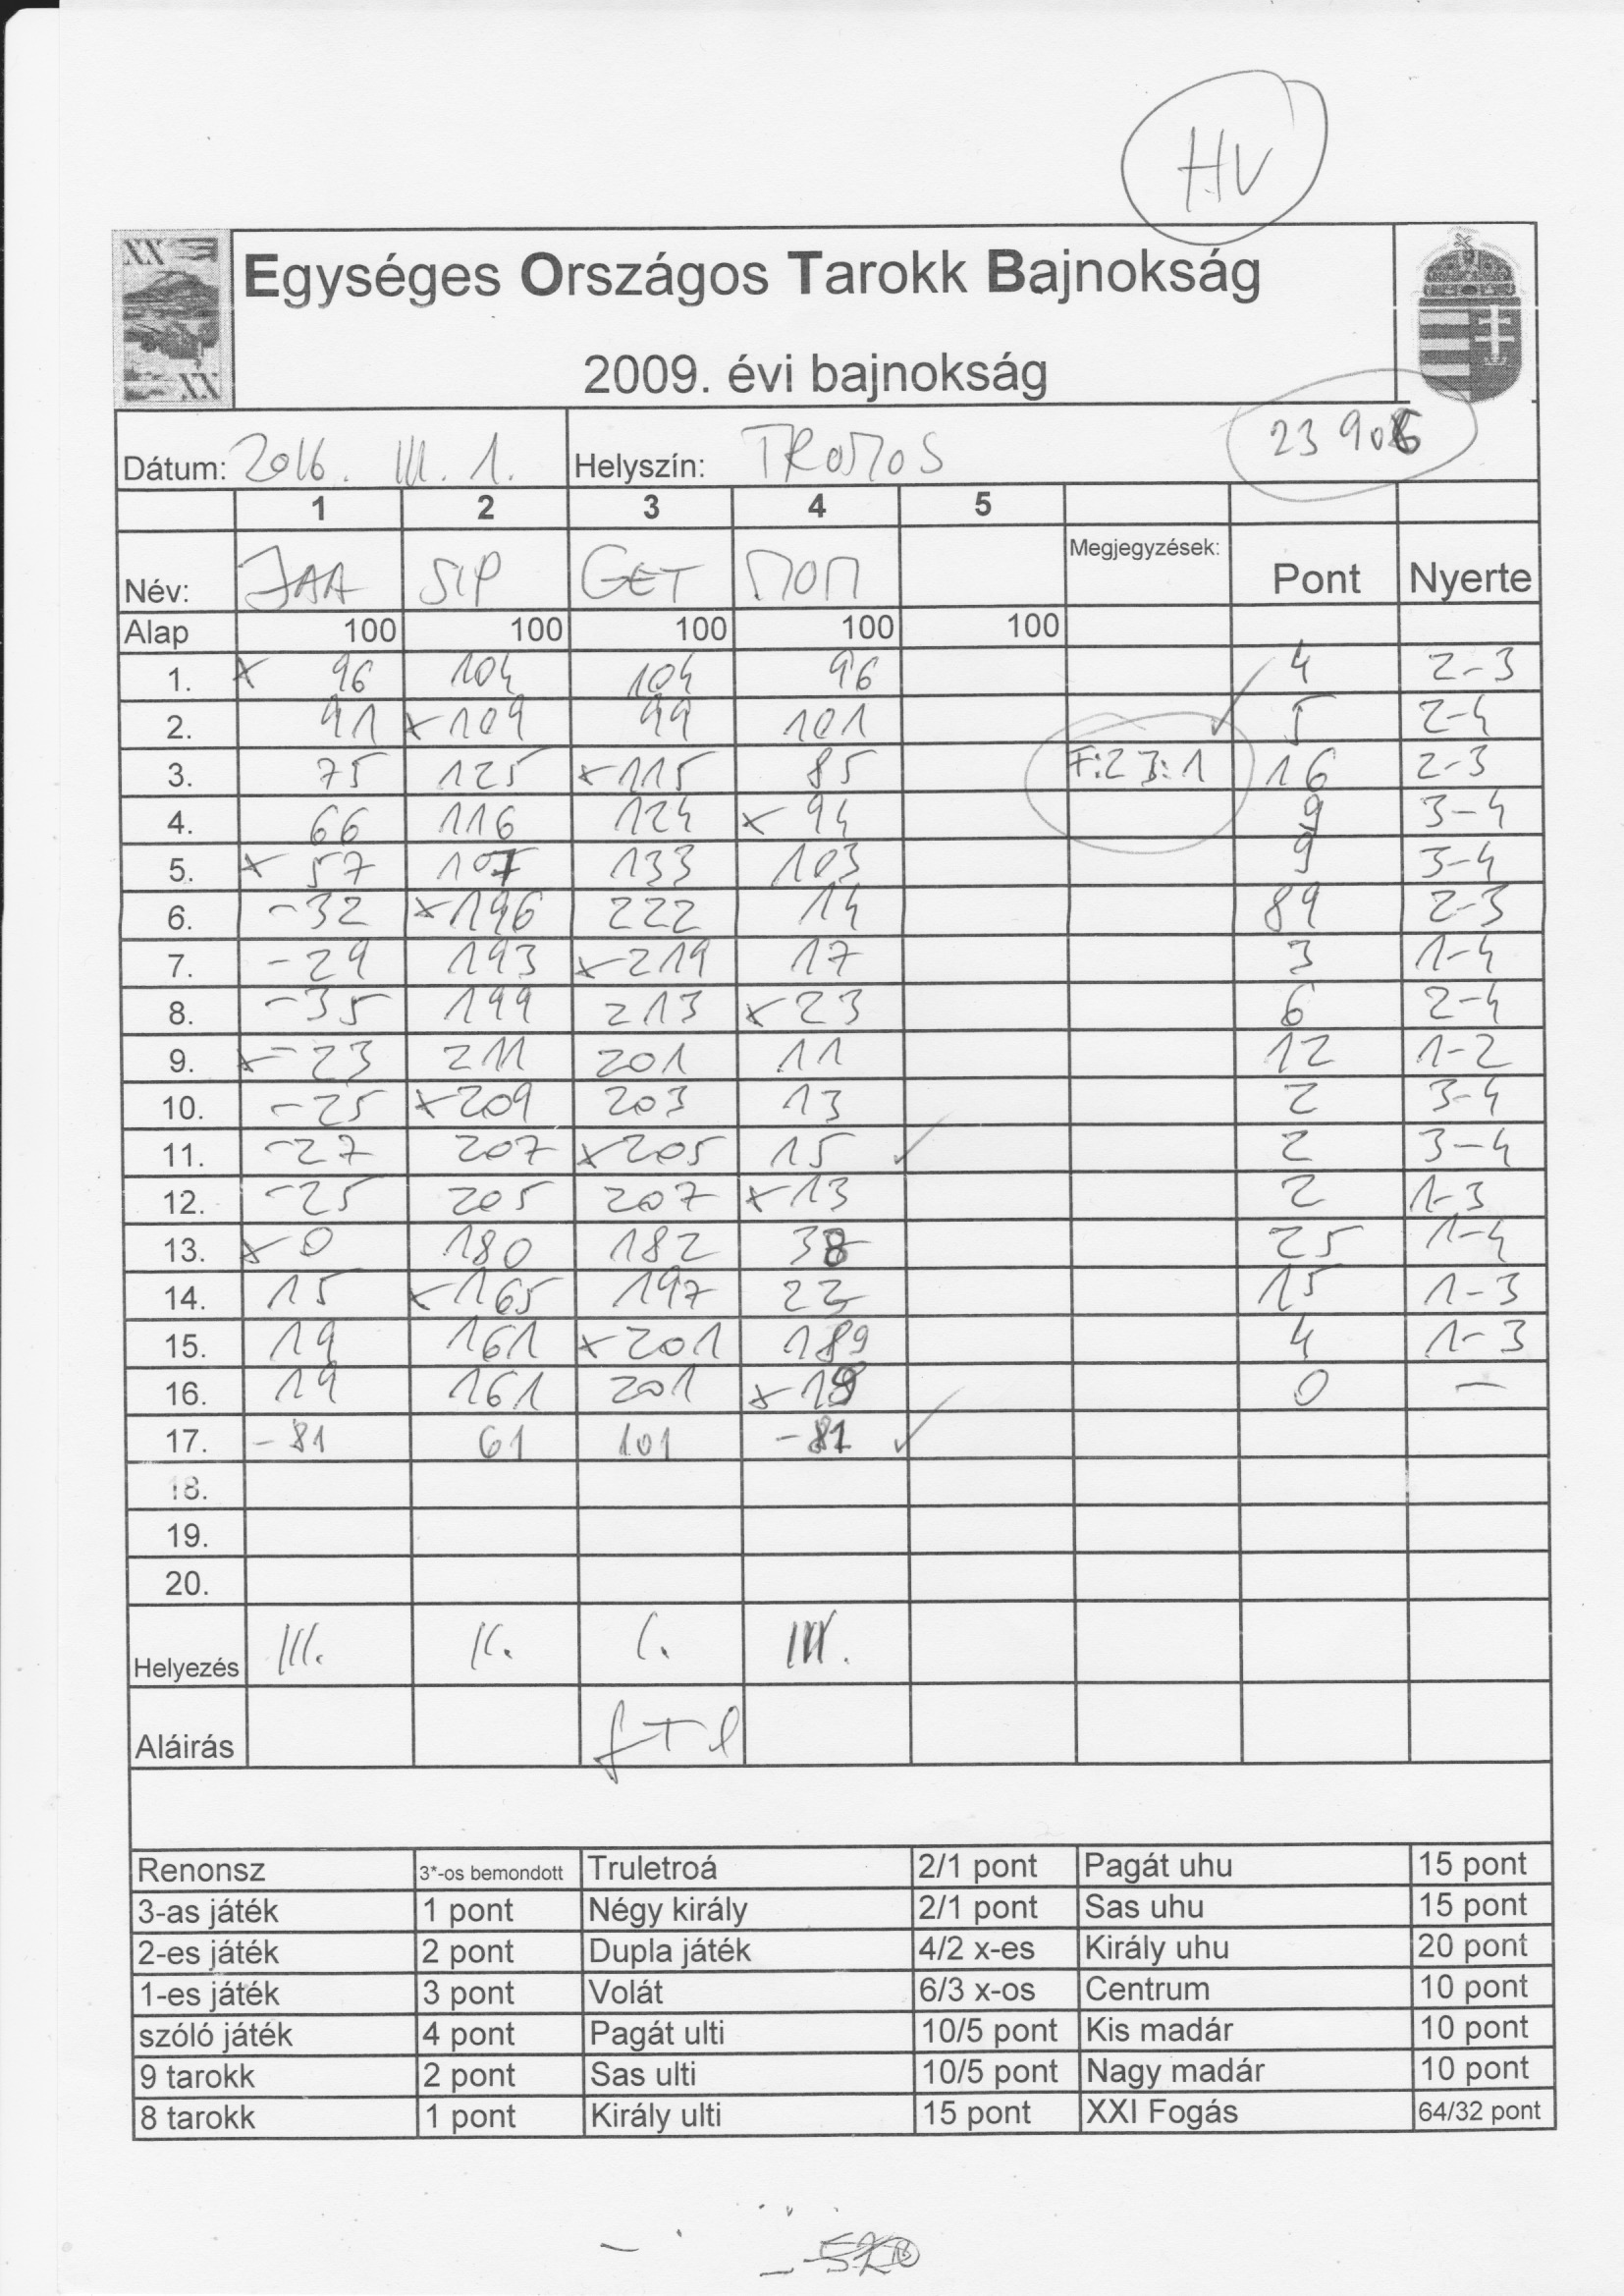 HV
XX
Egységes Országos Tarokk Bajnokság
2009. évi bajnokság
XX
Dátum: 2016. III. 1. Helyszín: 23 906
1 2 3 4 5
Név: JAA SIP GET MOM Megjegyzések: Pont Nyerte
Alap 100 100 100 100 100
1. x 96 104 104 96 4 2-3
2. 91 x 109 99 101 5 2-4
3. 75 125 x 115 85 F:23:1 16 2-3
4. 66 116 124 x 94 9 3-4
5. x 57 107 133 103 9 3-4
6. -32 x 196 222 14 89 2-3
7. -29 193 x 219 17 3 1-4
8. -35 199 213 x 23 6 2-4
9. x -23 211 201 11 12 1-2
10. -25 x 209 203 13 2 3-4
11. -27 207 x 205 15 2 3-4
12. -25 205 207 x 13 2 1-3
13. x 0 180 182 38 25 1-4
14. 15 x 165 197 23 15 1-3
15. 19 161 x 201 19 4 1-3
16. 19 161 201 x 19 0 -
17. -81 61 101 -81
18.
19.
20.
Helyezés III. II. I. III.
Aláirás
Renonsz 3*-os bemondott Truletroá 2/1 pont Pagát uhu 15 pont
3-as játék 1 pont Négy király 2/1 pont Sas uhu 15 pont
2-es játék 2 pont Dupla játék 4/2 x-es Király uhu 20 pont
1-es játék 3 pont Volát 6/3 x-os Centrum 10 pont
szóló játék 4 pont Pagát ulti 10/5 pont Kis madár 10 pont
9 tarokk 2 pont Sas ulti 10/5 pont Nagy madár 10 pont
8 tarokk 1 pont Király ulti 15 pont XXI Fogás 64/32 pont